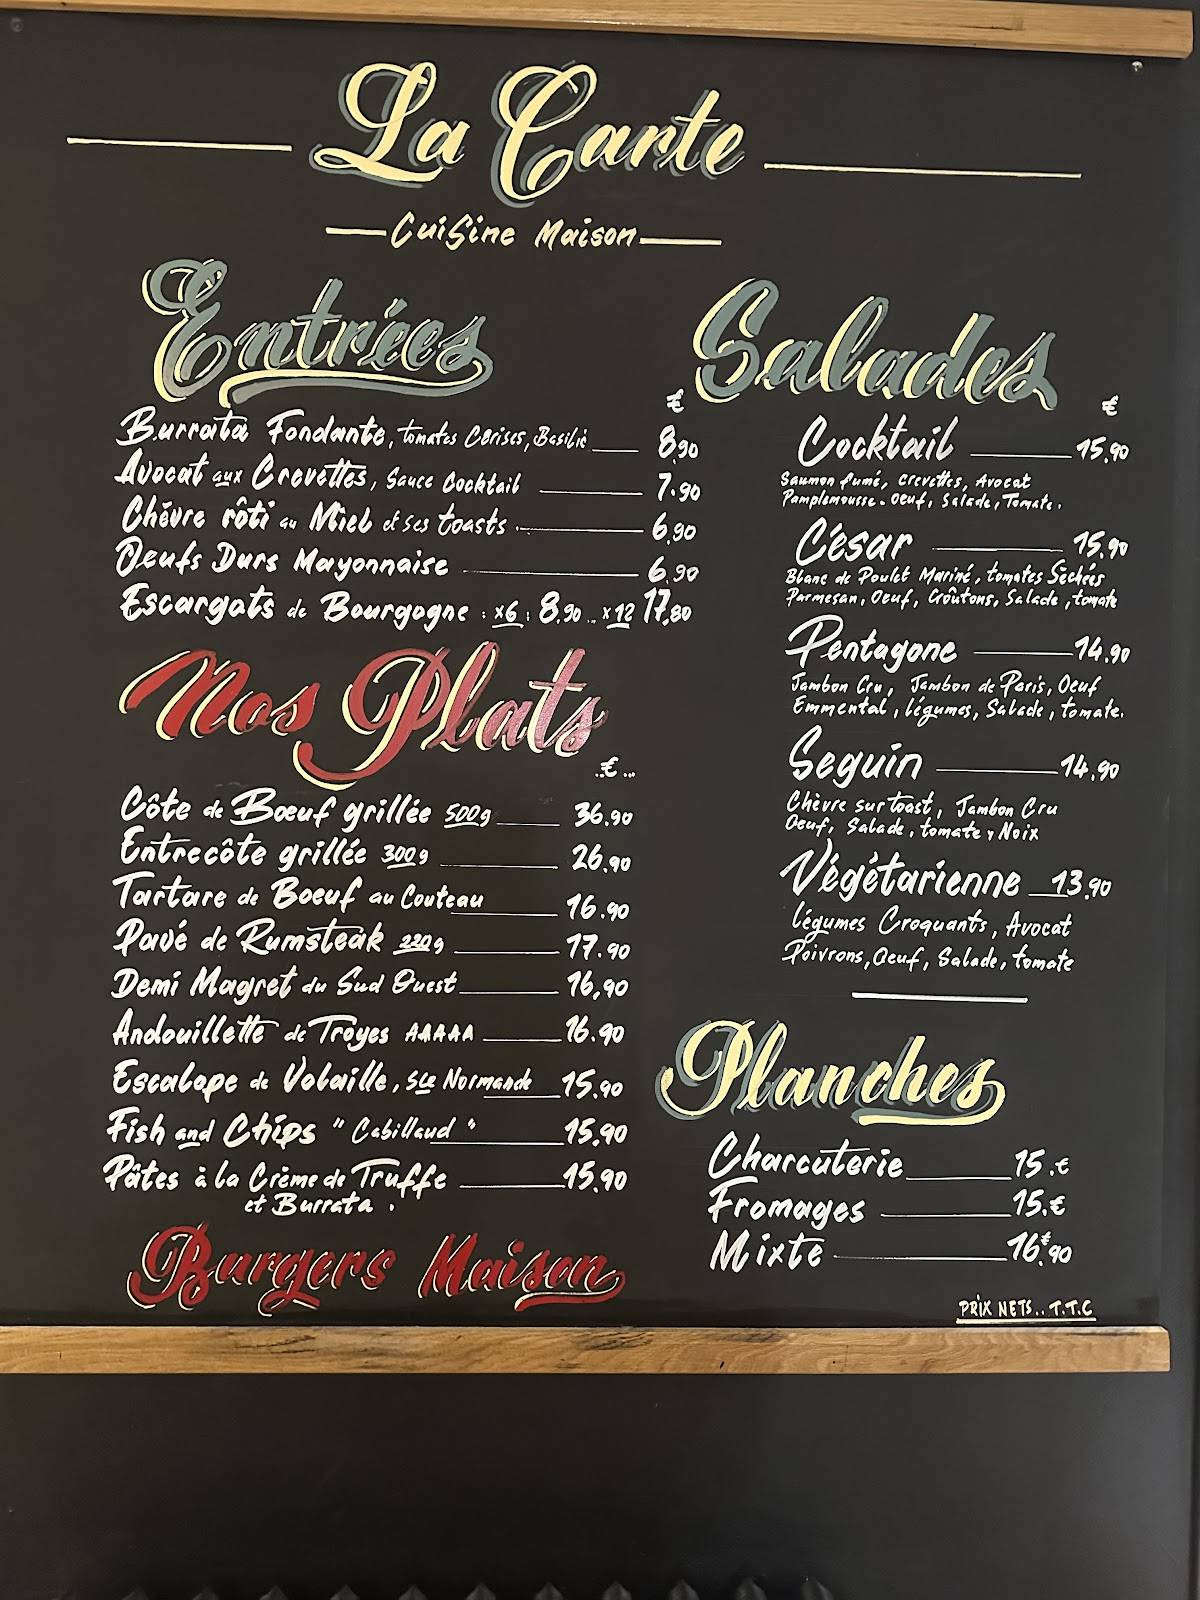 La Carte
Cuisine Maison
Entrées
€
Burrata Fondante, tomates Cerises, Basilic 8,90
Avocat aux Crevettes, Sauce Cocktail 7.90
Chèvre rôti au Miel et ses toasts. 6,90
Oeufs Durs Mayonnaise 6,90
Escargots de Bourgogne : x6 : 8.90... x12 17,80
Nos Plats
..€...
Côte de Bœuf grillée 500g 36.90
Entrecôte grillée 300g 26,90
Tartare de Boeuf au Couteau 16.90
Pavé de Rumsteak 220g 17.90
Demi Magret du Sud Ouest 16,90
Andouillette de Troyes AAAAA 16.90
Escalope de Volaille, Sce Normande 15,90
Fish and Chips "Cabillaud" 15,90
Pâtes à la Crème de Truffe 15,90
et Burrata.
Burgers Maison
Salades
€
Cocktail 15,90
Saumon fumé, crevettes, Avocat
Pamplemousse. oeuf, Salade, Tomate.
César 15,90
Blanc de Poulet Mariné, tomates Séchées
Parmesan, Oeuf, Croûtons, Salade, tomate
Pentagone 14,90
Jambon Cru, Jambon de Paris, Oeuf
Emmental, légumes, Salade, tomate.
Seguin 14,90
Chèvre sur toast, Jambon Cru
Oeuf, Salade, tomate, Noix
Végétarienne 13,90
légumes Croquants, Avocat
Poivrons, Oeuf, Salade, tomate
Planches
Charcuterie 15.€
Fromages 15.€
Mixte 16€,90
PRIX NETS.. T.T.C